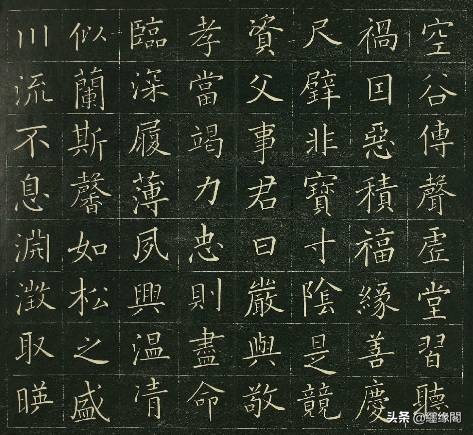 空谷傳聲虛堂習聽
禍囙惡積福緣善慶
尺璧非寶寸陰是競
資父事君曰嚴與敬
孝當竭力忠則盡命
臨深履薄夙興温凊
似蘭斯馨如松之盛
川流不息淵澂取暎
头条 @缘閣